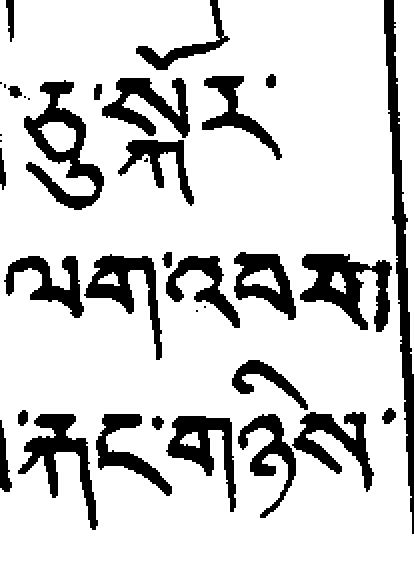 ཆུ་སྐོར་
ལག་འབབ།
་རྐང་གཉིས་